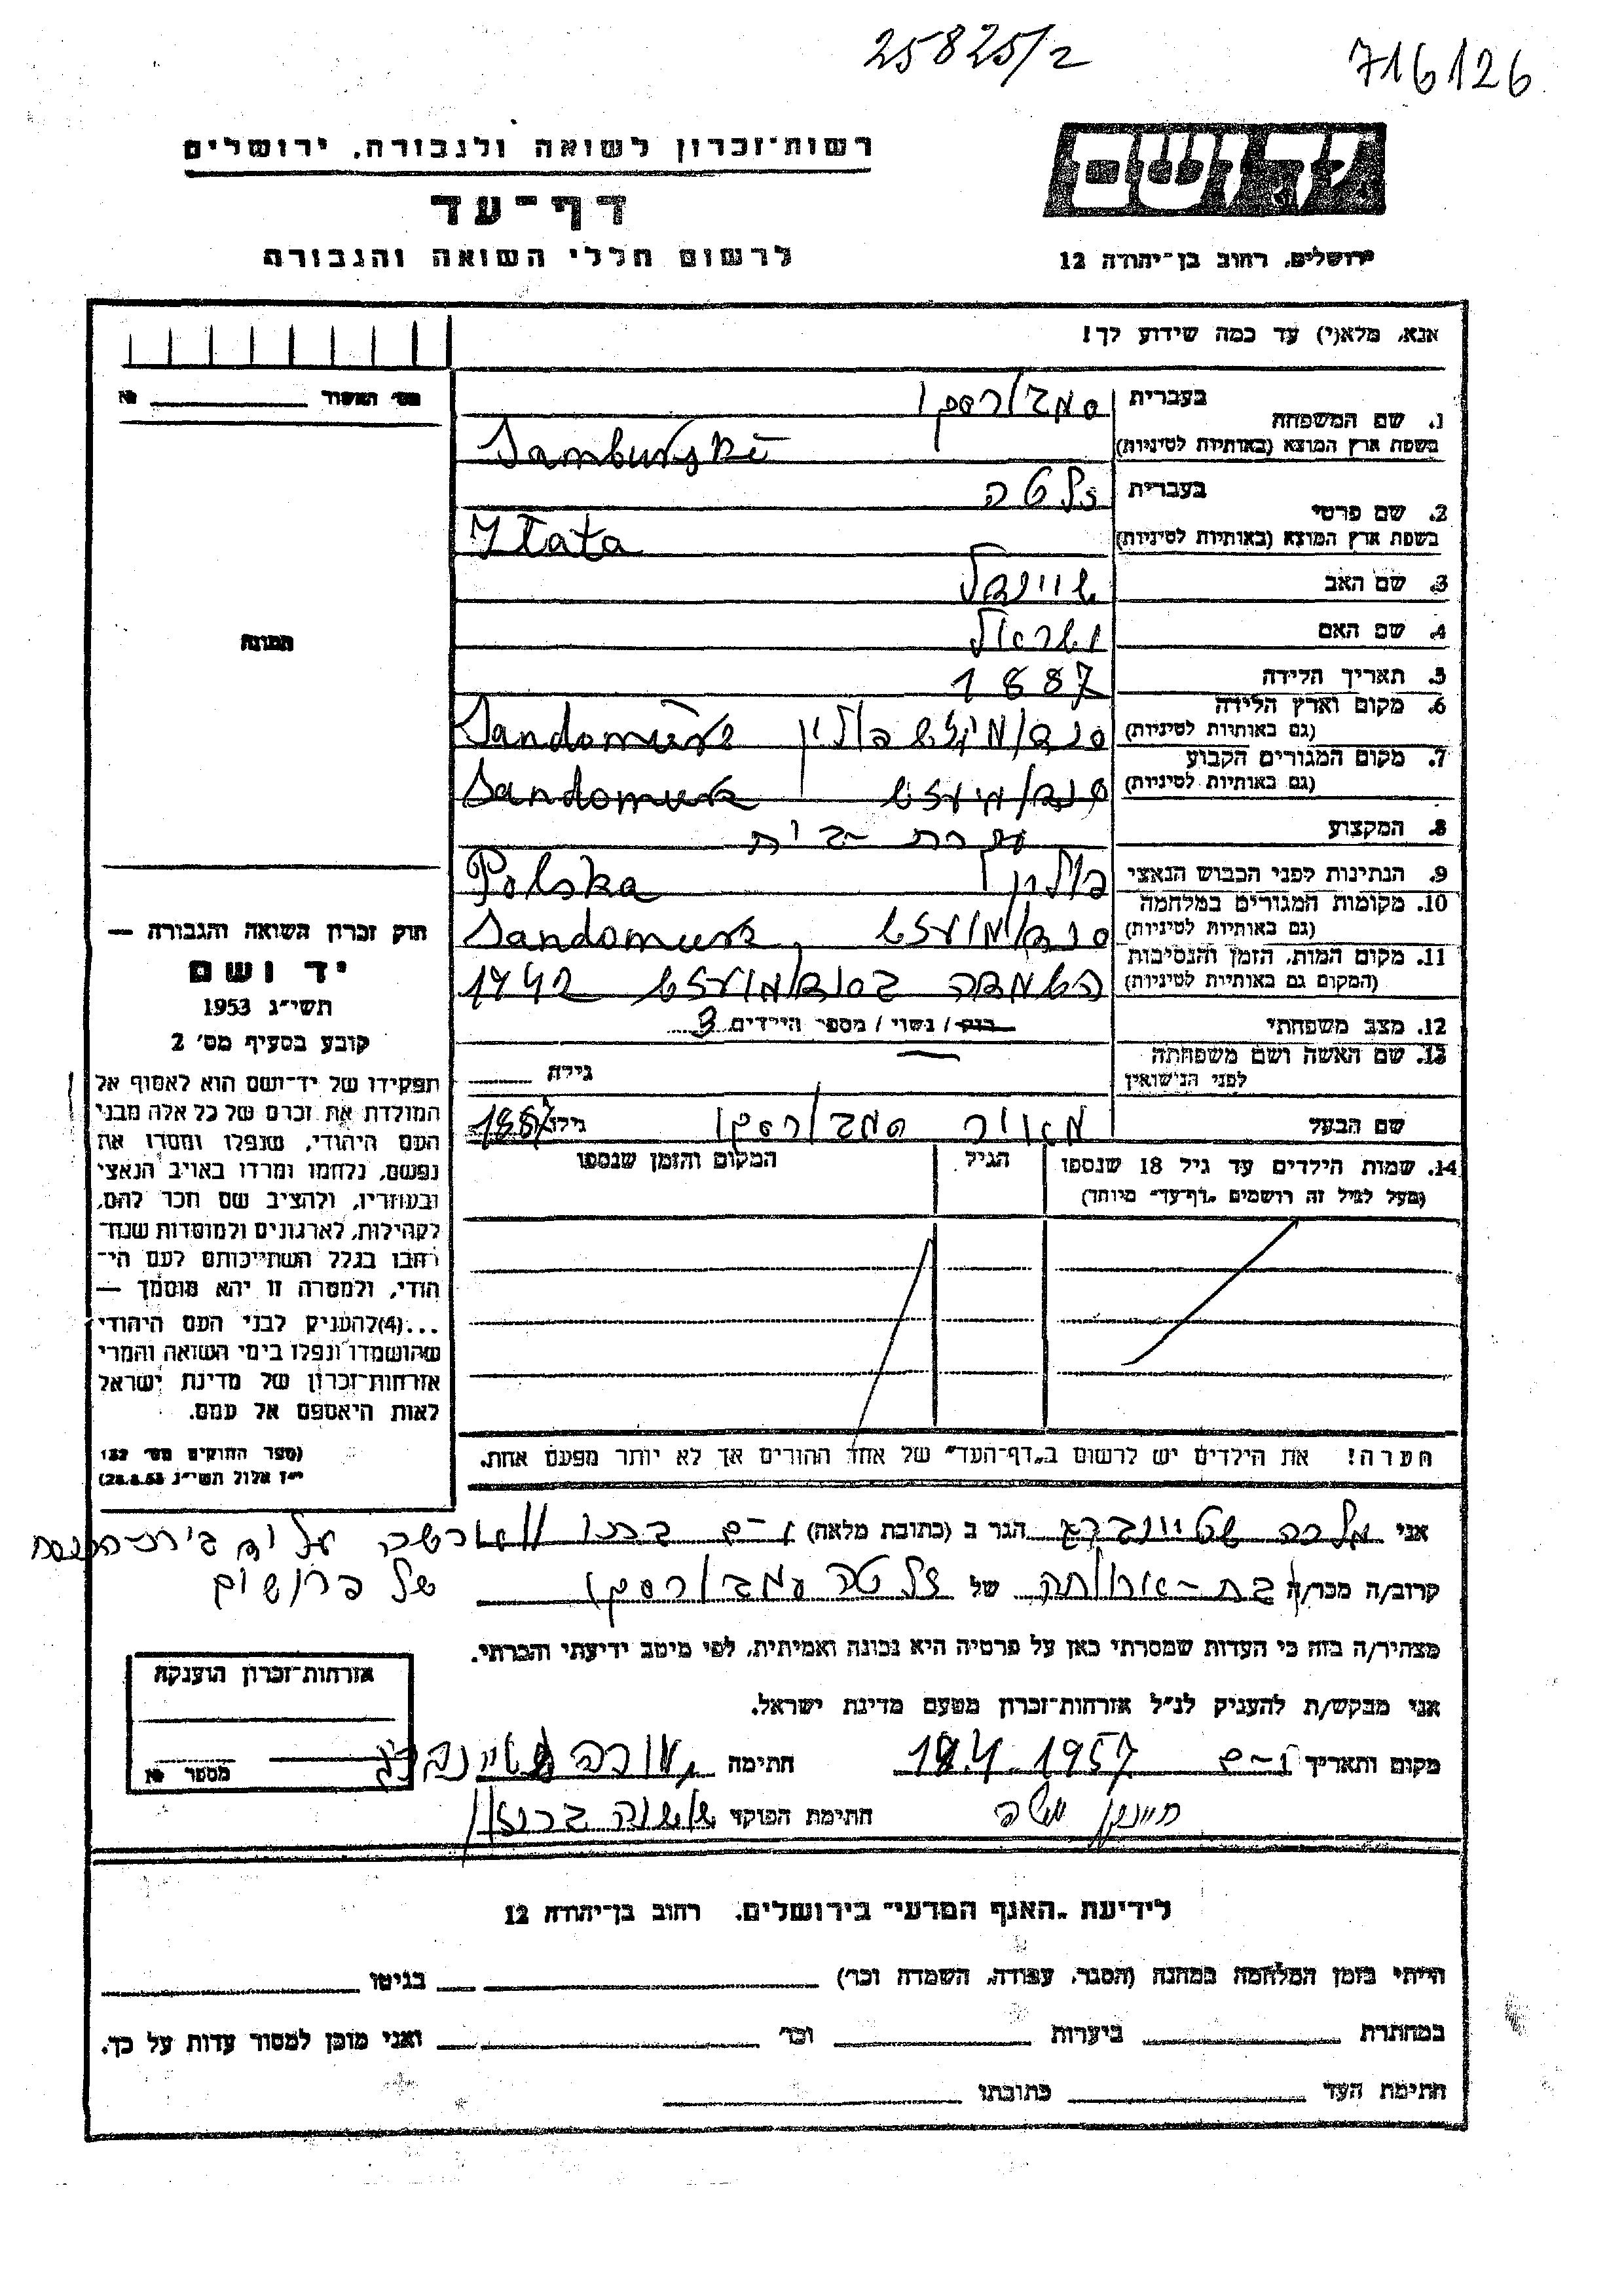 25825/2
716126
רשות־זכרון לשואה ולגבורה, ירושלים
יד ושם
דף־עד
לרשום חללי השואה והגבורה
ירושלים, רחוב בן־יהודה 12
אנא, מלא(י) עד כמה שידוע לך!
מס׳ האשור
1. שם המשפחה בעברית סמבורסקי
בשפת ארץ המוצא (באותיות לטיניות) Samburski
2. שם פרטי בעברית זלטה
בשפת ארץ המוצא (באותיות לטיניות) Złata
3. שם האב
4. שם האם
5. תאריך הלידה 1887
6. מקום וארץ הלידה
(גם באותיות לטיניות) פולין
7. מקום המגורים הקבוע
(גם באותיות לטיניות)
8. המקצוע עקרת-בית
9. הנתינות לפני הכבוש הנאצי Polska
10. מקומות המגורים במלחמה
(גם באותיות לטיניות)
11. מקום המות, הזמן והנסיבות
(המקום גם באותיות לטיניות) 1942
12. מצב משפחתי רווק / נשוי / מספר הילדים 3
13. שם האשה ושם משפחתה
לפני הנישואין גילה
שם הבעל מאיר סמבורסקי גילו 1887
תמונה
14. שמות הילדים עד גיל 18 שנספו הגיל המקום והזמן שנספו
(מעל לגיל זה רושמים „דף־עד״ מיוחד)
הערה! את הילדים יש לרשום ב„דף־העד״ של אחד ההורים אך לא יותר מפעם אחת.
חוק זכרון השואה והגבורה —
יד ושם
תשי״ג 1953
קובע בסעיף מס׳ 2
תפקידו של יד־ושם הוא לאסוף אל
המולדת את זכרם של כל אלה מבני
העם היהודי, שנפלו ומסרו את
נפשם, נלחמו ומרדו באויב הנאצי
ובעוזריו, ולהציב שם וזכר להם,
לקהילות, לארגונים ולמוסדות שנח־
רבו בגלל השתייכותם לעם הי־
הודי, ולמטרה זו יהא מוסמך —
...(4)להעניק לבני העם היהודי
שהושמדו ונפלו בימי השואה והמרי
אזרחות־זכרון של מדינת ישראל
לאות היאספם אל עמם.
(ספר החוקים מס׳ 132
י״ז אלול תשי״ג 28.8.53)
אני מלכה שטיינברג הגר ב (כתובת מלאה) י-ם בתי ווארשה על יד בית-הכנסת
קרוב/ה מכר/ה בת-אחותה של זלטה סמבורסקי
מצהיר/ה בזה כי העדות שמסרתי כאן על פרטיה היא נכונה ואמיתית, לפי מיטב ידיעתי והכרתי.
אני מבקש/ת להעניק לנ״ל אזרחות־זכרון מטעם מדינת ישראל.
מקום ותאריך י-ם 1957 חתימה
חתימת הפוקד
אזרחות־זכרון הוענקה
מספר
לידיעת „האגף המדעי״ בירושלים, רחוב בן־יהודה 12
הייתי בזמן המלחמה במחנה (הסגר, עבודה, השמדה וכו׳) בגיטו
במחתרת ביערות וכו׳ ואני מוכן למסור עדות על כך.
חתימת העד כתובתו